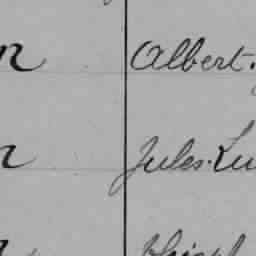 n Albert.
n Jules. Lu